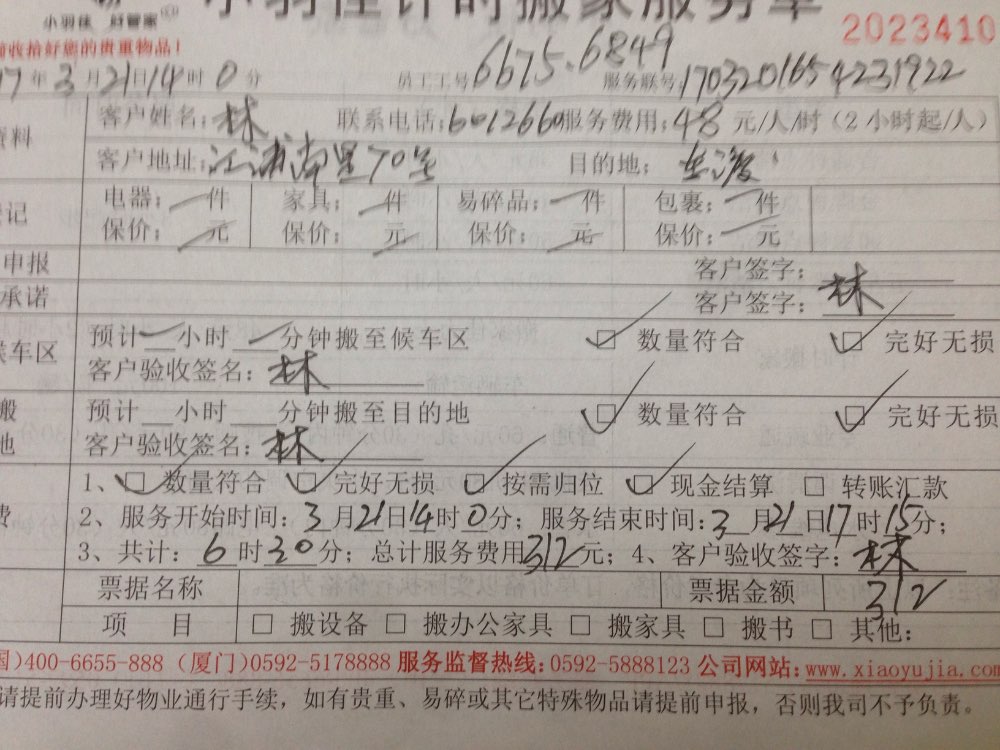 小羽佳计时搬家服务单
小羽佳 好管家
2023410
收拾好您的贵重物品！
17年3月21日14时0分 员工工号6675.6849 服务联号:1703201654231922
资料 客户姓名:林 联系电话:6012660 服务费用:48元/人/时（2小时起/人）
客户地址:江浦南里70号 目的地:东渡
登记 电器: 件 家具: 件 易碎品: 件 包裹: 件
保价: 元 保价: 元 保价: 元 保价: 元
申报 客户签字:
承诺 客户签字:林
候车区 预计 小时 分钟搬至候车区 ☑ 数量符合 ☑ 完好无损
客户验收签名:林
搬 预计 小时 分钟搬至目的地 ☑ 数量符合 ☑ 完好无损
地 客户验收签名:林
1、☑ 数量符合 ☑ 完好无损 ☑ 按需归位 ☑ 现金结算 □ 转账汇款
费 2、服务开始时间:3月21日14时0分；服务结束时间:3月21日17时15分；
3、共计:6时30分；总计服务费用312元；4、客户验收签字:林
票据名称 票据金额 312
项 目 □ 搬设备 □ 搬办公家具 □ 搬家具 □ 搬书 □ 其他:
国)400-6655-888（厦门)0592-5178888 服务监督热线:0592-5888123 公司网站:www.xiaoyujia.com
请提前办理好物业通行手续，如有贵重、易碎或其它特殊物品请提前申报，否则我司不予负责。